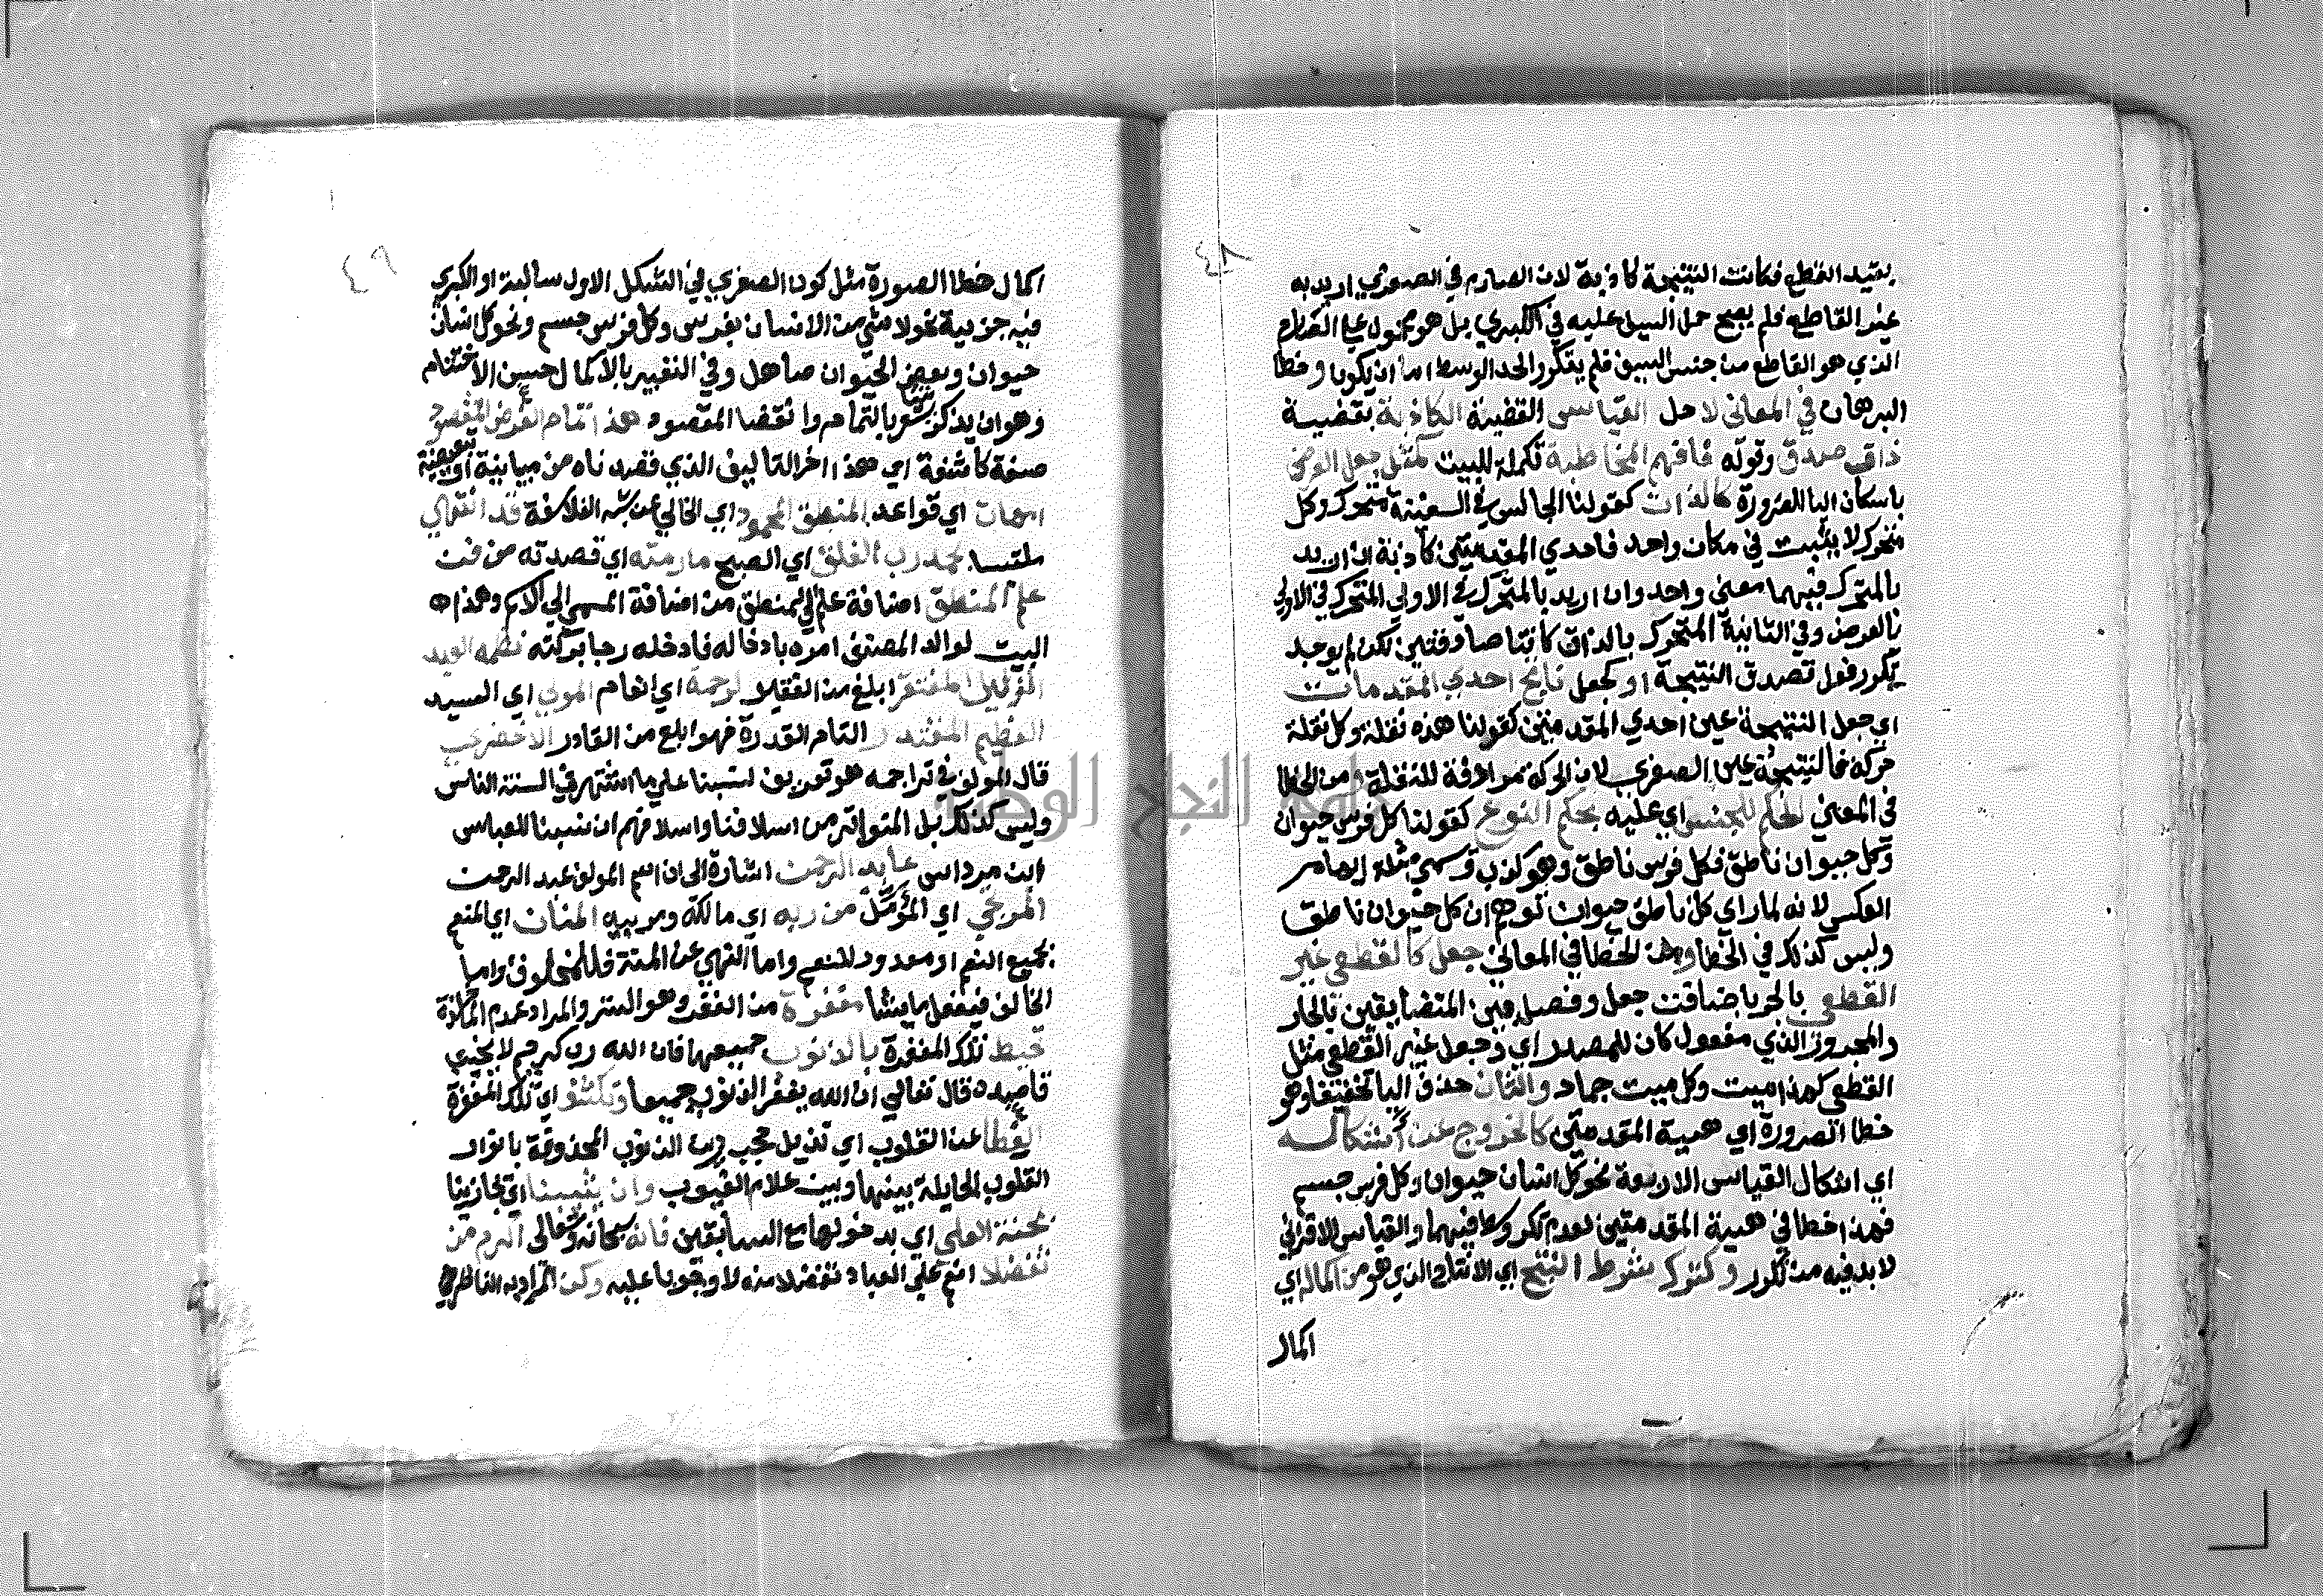 ٤٨
بقيد القطع فكانت النتيجة كاذبة لان الصارم في الصغري اريد به
غير القاطع فلم يصح حمل السيل عليه في الكبري بل هو محمول علي الصارم
الذي هو القاطع من جنس السيف فلم يتكرر الحد الوسط اما ان يكونا وخطا
البرهان في المعاني لاجل القياس القضية الكاذبة بقضية
ذات صدق وقوله فافهم المخاطبة تكملة للبيت كمثل جعل العرضي
باسكان اليا للضرورة كالذات كقولنا الجالس في السفينة متحرك وكل
متحرك لا يثبت في مكان واحد فاحدي المقدمتين كاذبة ان اريد
بالمتحرك فيهما معني واحد وان اريد بالمتحرك في الاولي المتحرك في الاولي
بالعرض وفي الثانية المتحرك بالذات كانتا صادقتين لكن لم يوجد
تكرر فول تصدق النتيجة او كجعل ناتج احدي المقدمات
اي جعل النتيجة عين احدي المقدمتين كقولنا هذه نقلة وكل نقلة
حركة فالنتيجة عين الصغري لان الحركة مرادفة للنقلة ومن الخطا
في المعني الحكم للجنس اي عليه بحكم النوع كقولنا كل فرس حيوان
وكل حيوان ناطق فكل فرس ناطق وهو كذب وسمي مثله ايهام
العكس لانه لما راي كل ناطق حيوان توهم ان كل حيوان ناطق
وليس كذلك في الخطا وهذا الخطا في المعاني جعل كالقطعي غير
القطعي بالجر باضافت جعل وفصل بين المتضايفين بالجار
والمجرور الذي مفعول كان للمصدر اي وجعل غير القطعي مثل
القطعي كهذا ميت وكل ميت جماد والثان حذف اليا تخفيفا وهو
خطا الصرورة اي هيية المقدمتين كالخروج عن أشكاله
اي اشكال القياس الاربعة نحو كل انسان حيوان وكل فرس جسم
فهذا خطا في هيية المقدمتين لعدم تكرر وسط فيهما والقياس الاقتراني
لا بد فيه من تكرر وكترك شرط النتج اي الانتاج الذي هو من اكماله اي
اكمال
٤٩
اكمال خطا الصورة مثل كون الصغري في الشكل الاول سالبة او الكبري
فيه جزيية نحو لا شي من الانسان بفرس وكل فرس جسم ونحو كل انسان
حيوان وبعض الحيوان صاهل وفي التعبير بالاكمال حسن الاختتام
وهو ان يذكر شيا يشعر بالتمام وانقضا المقصود هذا تمام الغرض المقصود
صفة كاشفة اي هذا اخر التاليف الذي قصدناه من مباينة او بعضية
امهات اي قواعد المنطق المحمود اي الخالي عن شبه الفلاسفة قد انتهي
ملتبسا بحمد رب الفلق اي الصبح ما رمته اي قصدته من فن
علم المنطق اضافة علم الي المنطق من اضافة المسمي الي الاسم وهذا
البيت لوالد المصنف امره بادخاله فادخله رجا بركته نظمه العبد
الذليل المفتقر ابلغ من الفقير لرحمة اي انعام المولي اي السيد
العظيم المقتدر التام القدرة فهو ابلغ من القادر الاخضري
قال المولف في تراجمه هو تعريف لنسبنا علي ما اشتهر في السنة الناس
وليس كذلك بل المتواتر من اسلافنا واسلافهم ان نسبنا للعباس
ابن مرداس عابد الرحمن اشارة الي ان اسم المولف عبد الرحمن
المرتجي اي المؤمل من ربه اي مالكه ومربيه المنان اي المنعم
بجميع النعم او معدود للنعم واما النهي عن المنة فللمخلوق واما
الخالق فيفعل ما يشا مغفرة من الغفر وهو الستر والمراد عدم المواخذة
تحيط تلك المغفرة بالذنوب جميعها فان الله رب كريم لا يخيب
قاصده قال تعالي ان الله يغفر الذنوب جميعا وتكشف اي تلك المغفرة
الغطا عن القلوب اي تذيل حجب رين الذنوب المحذوقة بانوار
القلوب الحايلة بينها وبين علام الغيوب وان يثيبنا اي يجازينا
بجنة العلي اي بدخولها مع السابقين فانه سبحانه وتعالي اكرم من
تفضلا انعم علي العباد تفضلا منه لا وجوبا عليه وكن المراد به الناظر في
جامعة النجاح الوطنية